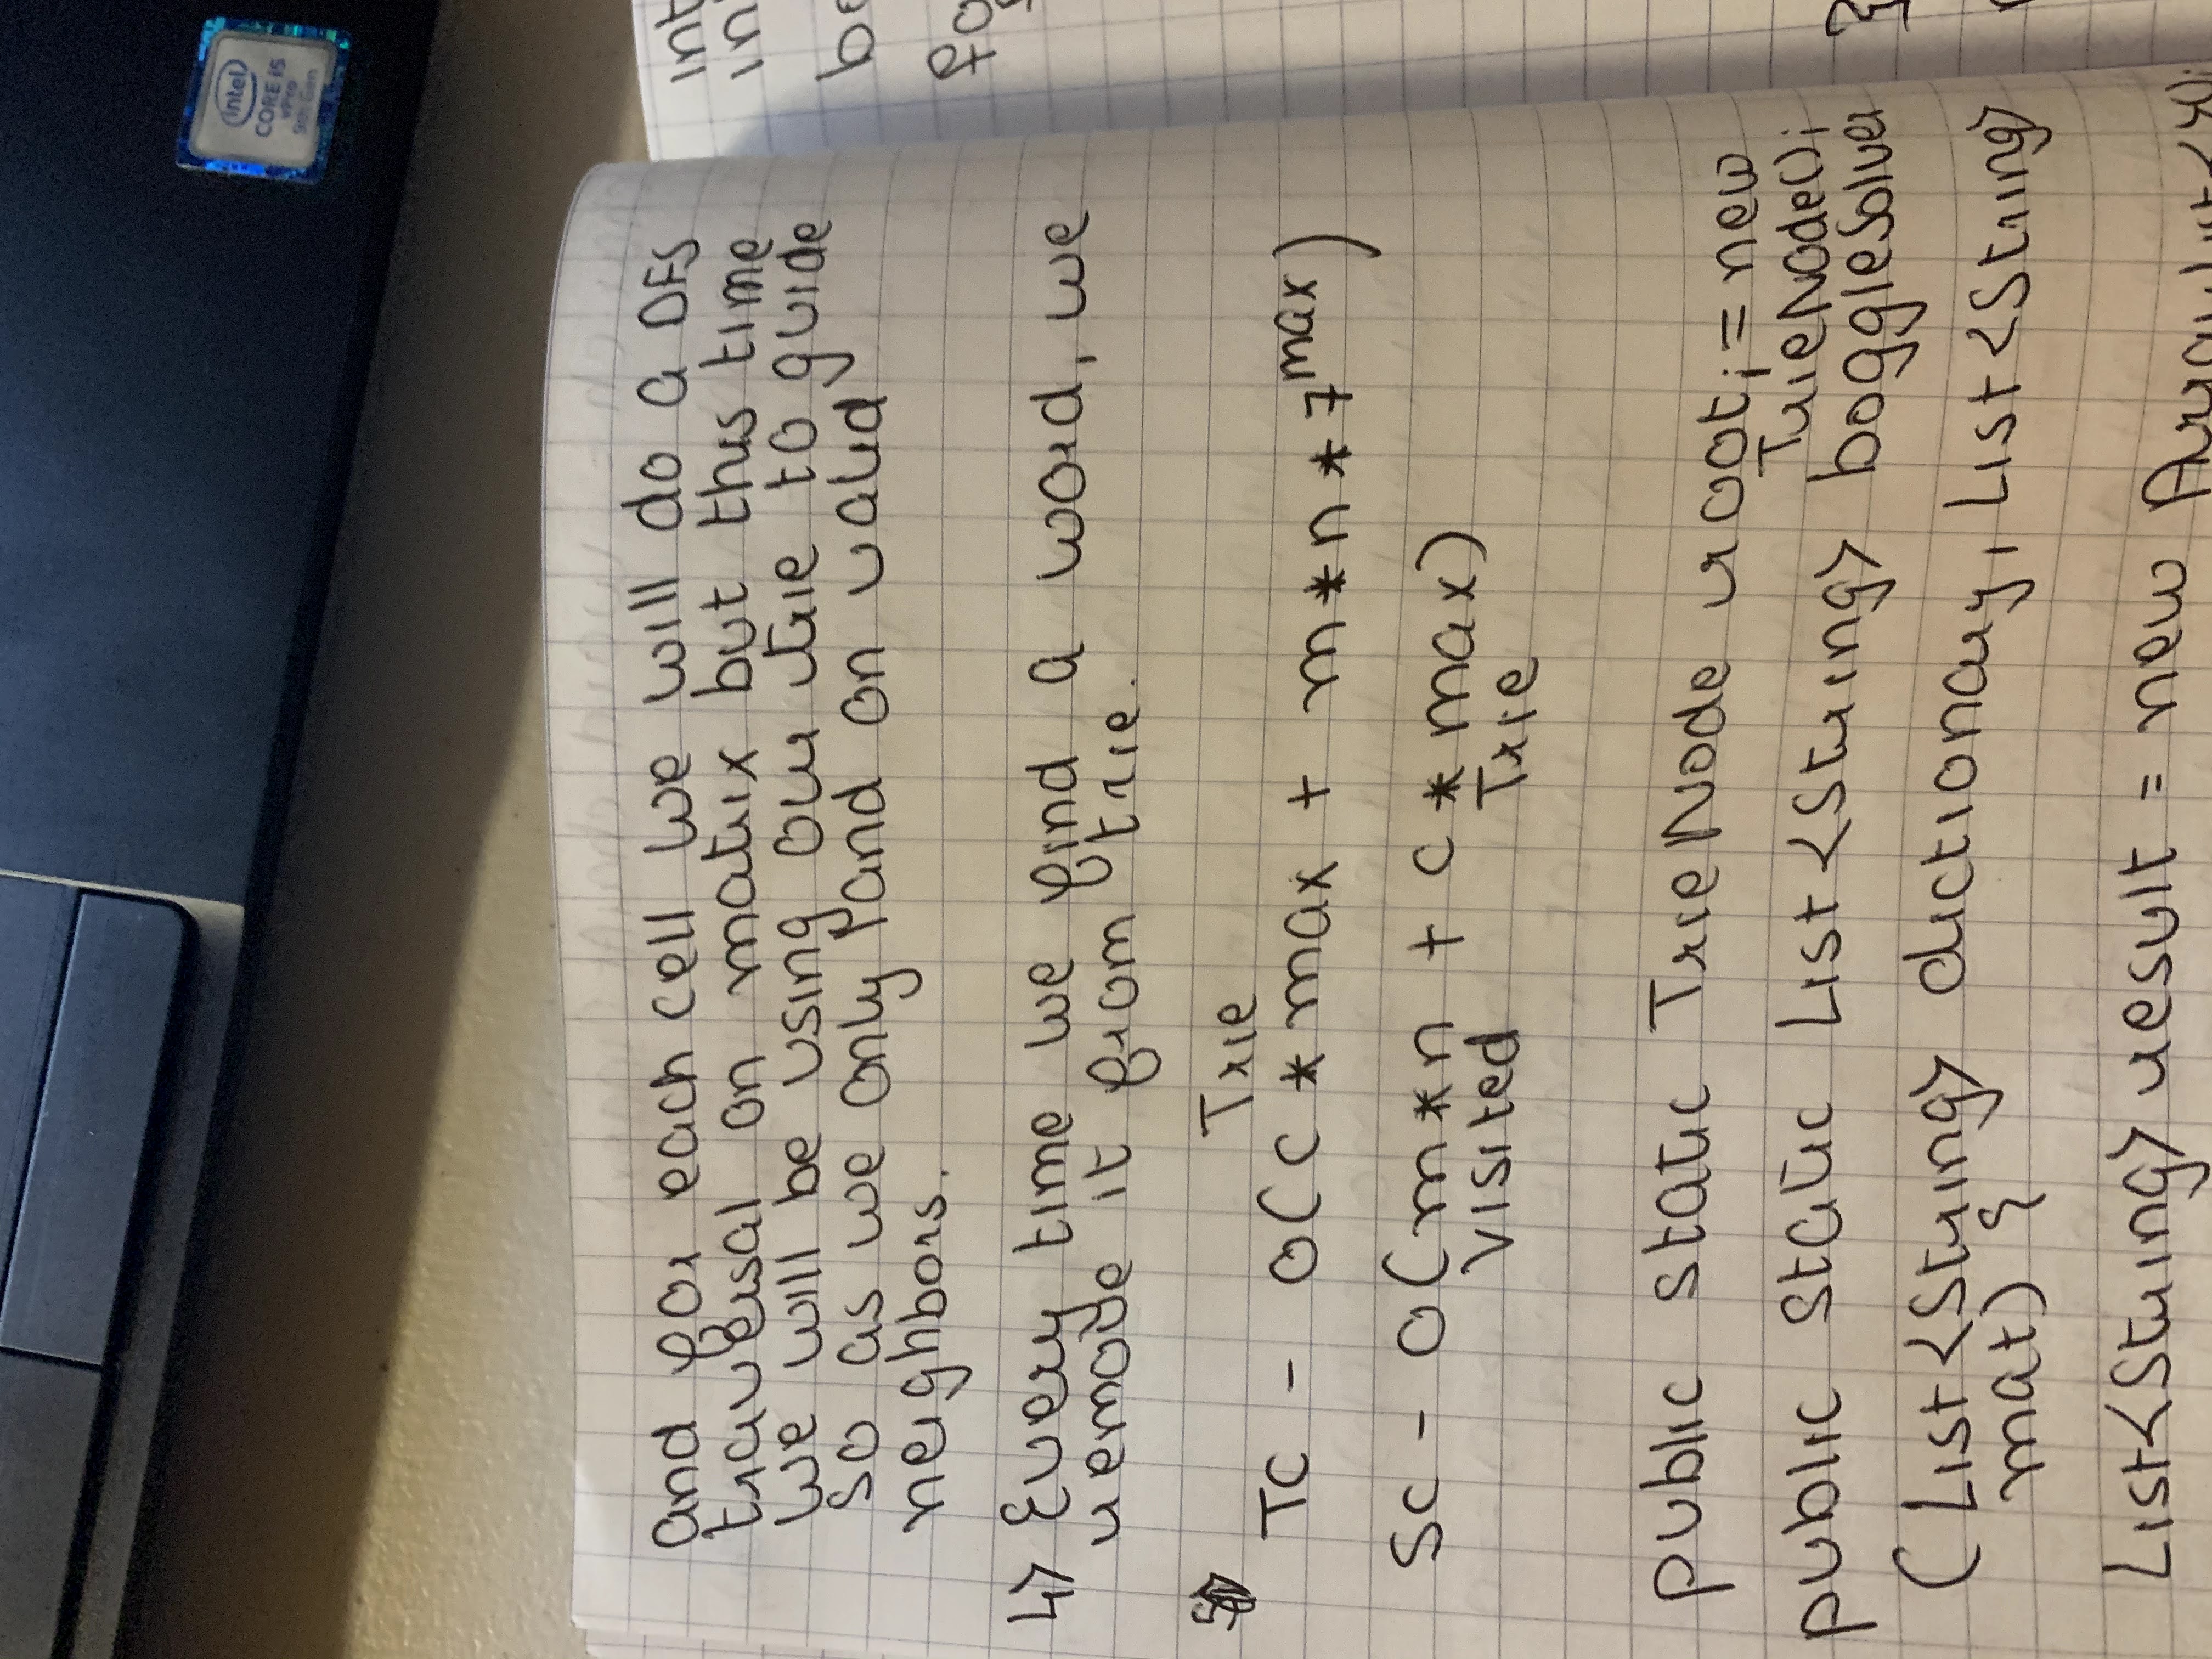 intel
CORE i5
vPro
9th Gen
and for each cell we will do a DFS
traversal on matrix but this time
we will be using our trie to guide
so as we only land on valid
neighbors.
4) Every time we find a word, we
remove it from trie.
Trie
TC - O(C * max + m*n*7^max)
SC - O(m*n + C * max)
Visited Trie
public static TrieNode root; = new
TrieNode();
public static List<String> boggleSolver
(List<String> dictionary, List<String>
mat) {
List<String> result = new ArrayList<>();
int